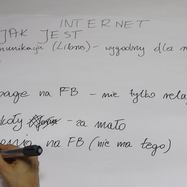 INTERNET
JAK JEST
munikacja (Librus) - wygodny dla n
page na FB - nie tylko rela
koły - za mało
na FB (nie ma tego)